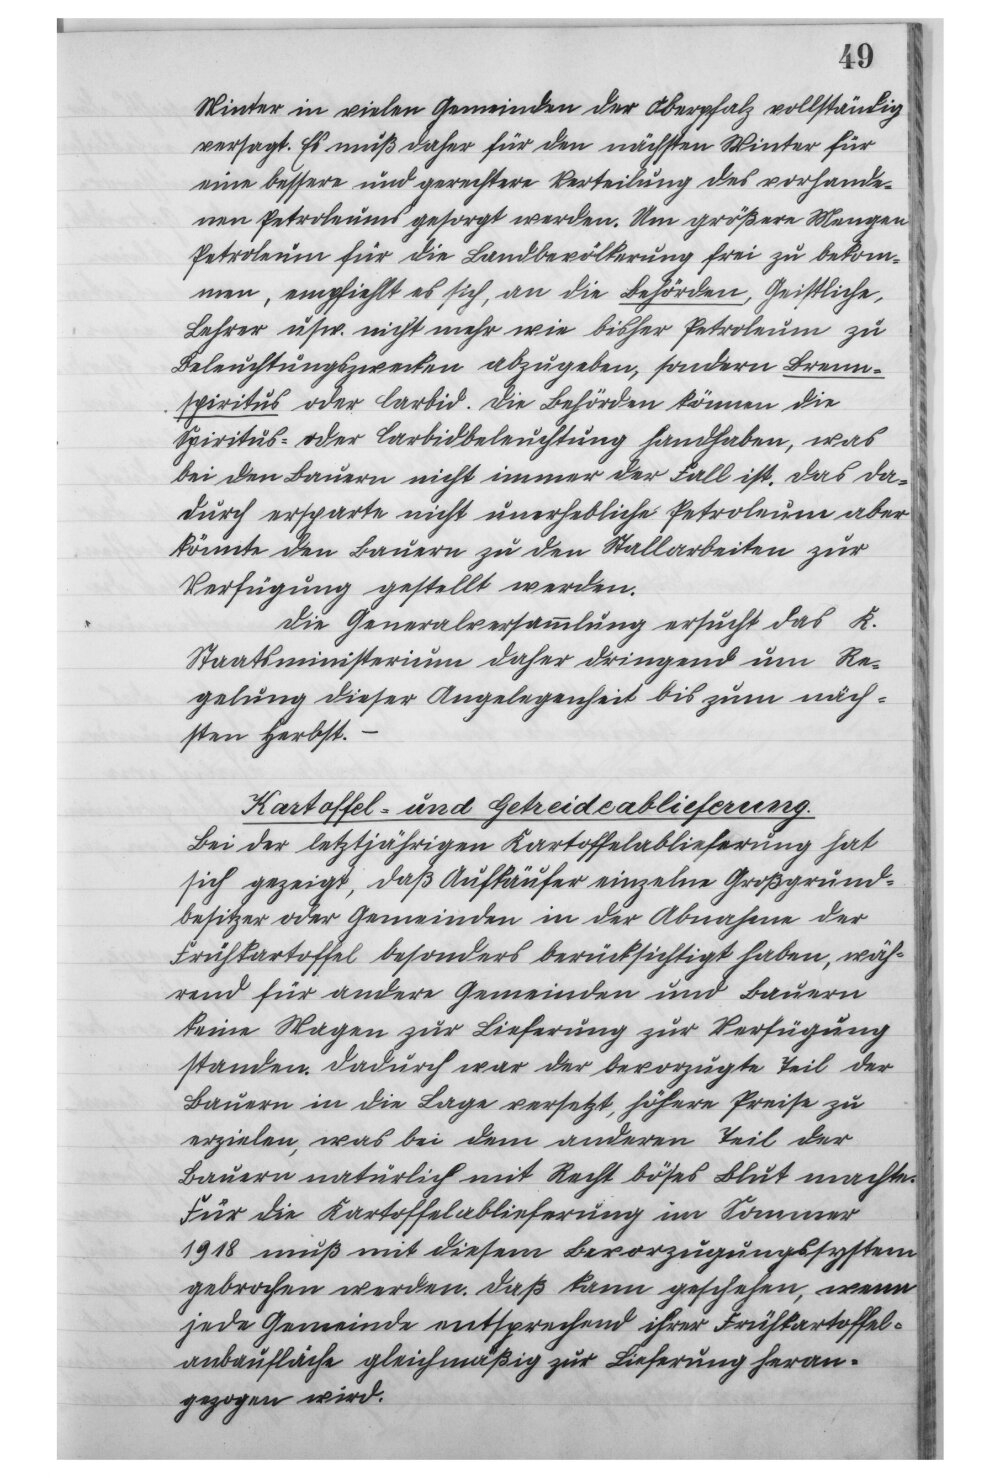 49
Winter in vielen Gemeinden der Oberpfalz vollständig
versagt. Es muß daher für den nächsten Winter für
eine bessere und gerechtere Verteilung des vorhande=
nen Petroleums gesorgt werden. Um größere Mengen
Petroleum für die Landbevölkerung frei zu bekom=
men, empfiehlt es sich, an die Behörden, Geistliche,
Lehrer usw. nicht mehr wie bisher Petroleum zu
Beleuchtungszwecken abzugeben, sondern Brenn=
spiritus oder Carbid. Die Behörden können die
Spiritus= oder Carbidbeleuchtung handhaben, was
bei den Bauern nicht immer der Fall ist. Das da=
durch ersparte nicht unerhebliche Petroleum aber
könnte den Bauern zu den Stallarbeiten zur
Verfügung gestellt werden.
Die Generalversammlung ersucht das K.
Staatsministerium daher dringend um Re=
gelung dieser Angelegenheit bis zum näch=
sten Herbst. –
Kartoffel= und Getreideablieferung.
Bei der letztjährigen Kartoffelablieferung hat
sich gezeigt, daß Aufkäufer einzelne Großgrund=
besitzer oder Gemeinden in der Abnahme der
Frühkartoffel besonders berücksichtigt haben, wäh=
rend für andere Gemeinden und Bauern
keine Wagen zur Lieferung zur Verfügung
standen. Dadurch war der bevorzugte Teil der
Bauern in die Lage versetzt, höhere Preise zu
erzielen, was bei dem anderen Teil der
Bauern natürlich mit Recht böses Blut machte.
Für die Kartoffelablieferung im Sommer
1918 muß mit diesem Bevorzugungssystem
gebrochen werden. Daß kann geschehen, wenn
jede Gemeinde entsprechend ihrer Frühkartoffel=
anbaufläche gleichmäßig zur Lieferung heran=
gezogen wird.